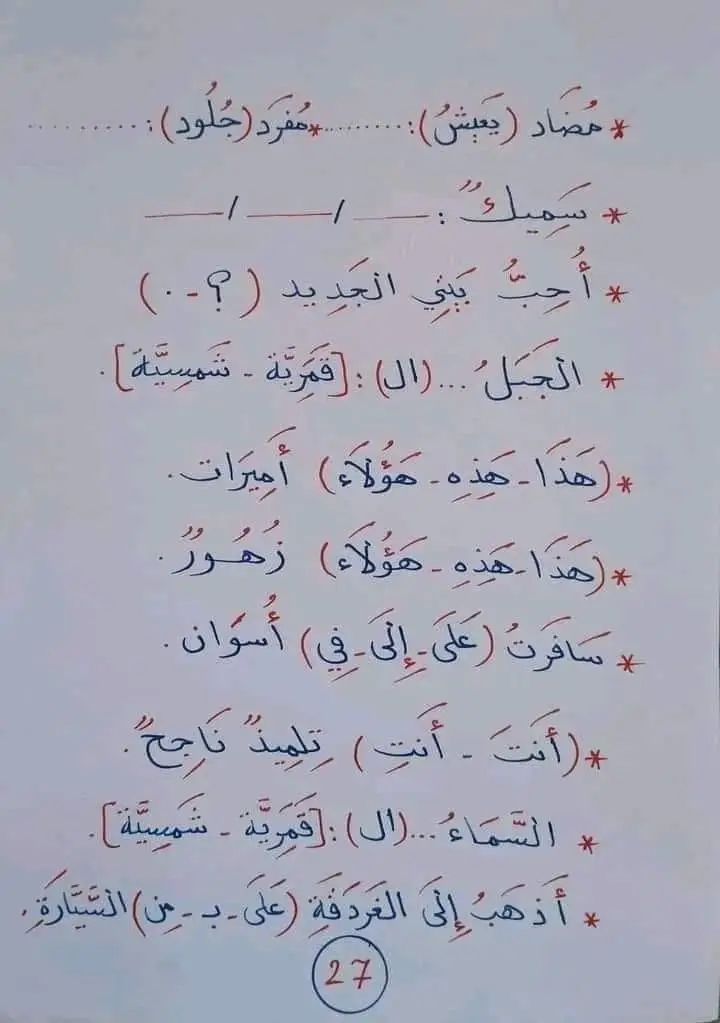 * مُضَاد (يَعِيشُ): ........ * مُفرَد (جُلُود): ........
* سَمِيكٌ : ___ / ___ / ___
* أُحِبُّ بَيتِي الجَدِيد (؟ - .)
* الجَبَلُ ... (ال) : [قَمَرِيَّة - شَمسِيَّة].
* (هَذَا - هَذِهِ - هَؤُلَاء) أَمِيرَات.
* (هَذَا - هَذِهِ - هَؤُلَاء) زُهُورٌ.
* سَافَرتُ (عَلَى - إِلَى - فِي) أُسوَان.
* (أَنتَ - أَنتِ) تِلمِيذٌ نَاجِحٌ.
* السَّمَاءُ ... (ال) : [قَمَرِيَّة - شَمسِيَّة].
* أَذهَبُ إِلَى الغَردَقَةِ (عَلَى - بـ - مِن) السَّيَّارَةِ.
27